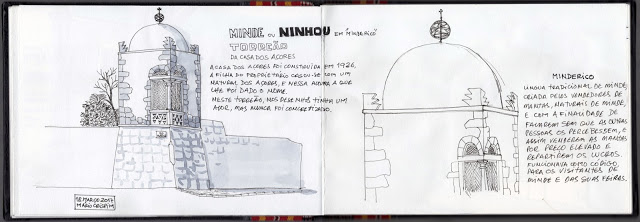 MINDE OU NINHOU EM MINDERICO
TORREÃO
DA CASA DOS AÇORES
A CASA DOS AÇORES FOI CONSTRUÍDA EM 1926,
A FILHA DO PROPRIETÁRIO CASOU-SE COM UM
NATURAL DOS AÇORES, E NESSA ALTURA É QUE
LHE FOI DADO O NOME.
NESTE TORREÃO, NOS DESENHOS TINHA UM
, MAS NUNCA FOI CONCRETIZADO.
18 MARÇO 2017
MÁRIO CRISPIM
MINDERICO
LÍNGUA TRADICIONAL DE MINDE,
CRIADA PELOS VENDEDORES DE
MANTAS, NATURAIS DE MINDE,
E COM A FINALIDADE DE
FALAREM SEM QUE AS OUTRAS
PESSOAS OS PERCEBESSEM, E
ASSIM VENDEREM AS MANTAS
POR PREÇO ELEVADO E
REPARTIREM OS LUCROS.
FUNCIONAVA COMO CÓDIGO,
PARA OS VISITANTES DE
MINDE E DAS SUAS FEIRAS.